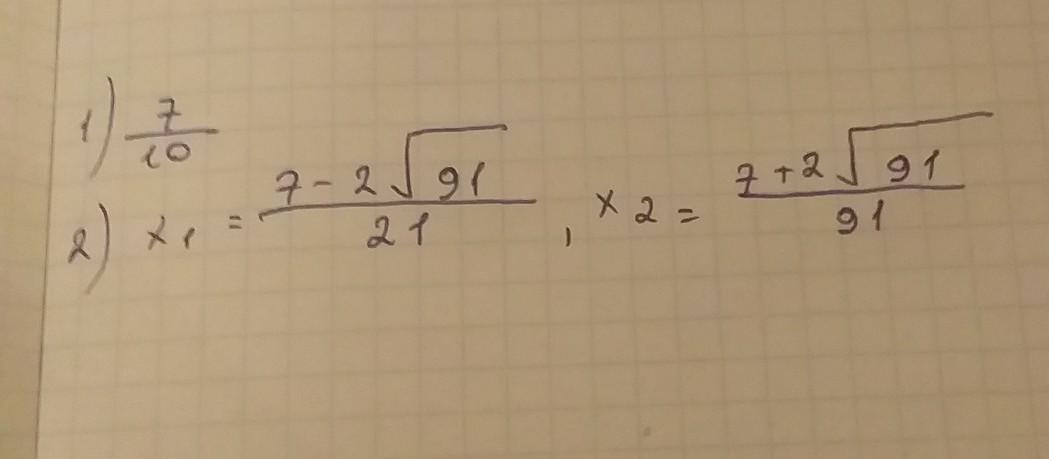 1) 7/10
2) x₁ = (7 - 2√91)/21, x₂ = (7 + 2√91)/91